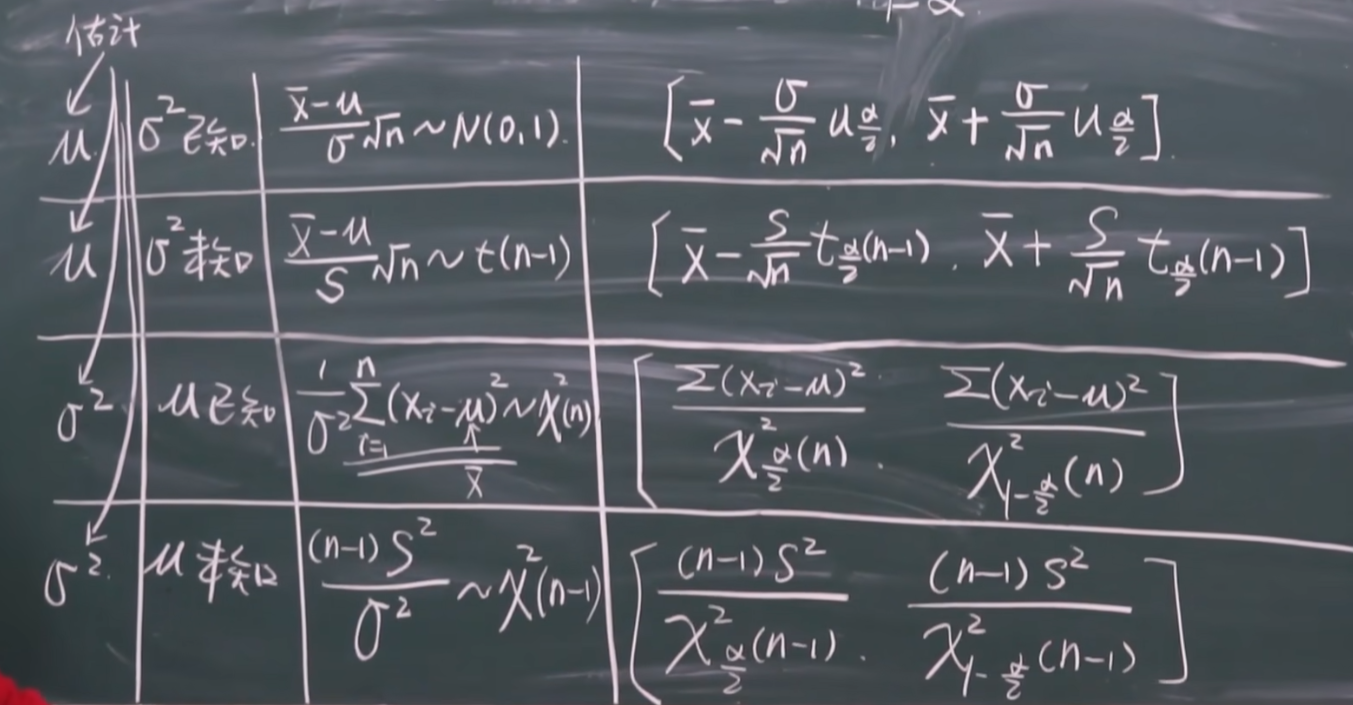 1-α
估计
μ σ²已知 (x̄-μ)/σ √n ~ N(0,1) [x̄ - σ/√n u_{α/2}, x̄ + σ/√n u_{α/2}]
μ σ²未知 (x̄-μ)/S √n ~ t(n-1) [x̄ - S/√n t_{α/2}(n-1), x̄ + S/√n t_{α/2}(n-1)]
σ² μ已知 1/σ² Σ_{i=1}^{n}(x_i-μ)² ~ χ²(n) [Σ(x_i-μ)²/χ²_{α/2}(n), Σ(x_i-μ)²/χ²_{1-α/2}(n)]
x̄
σ² μ未知 (n-1)S²/σ² ~ χ²(n-1) [(n-1)S²/χ²_{α/2}(n-1), (n-1)S²/χ²_{1-α/2}(n-1)]